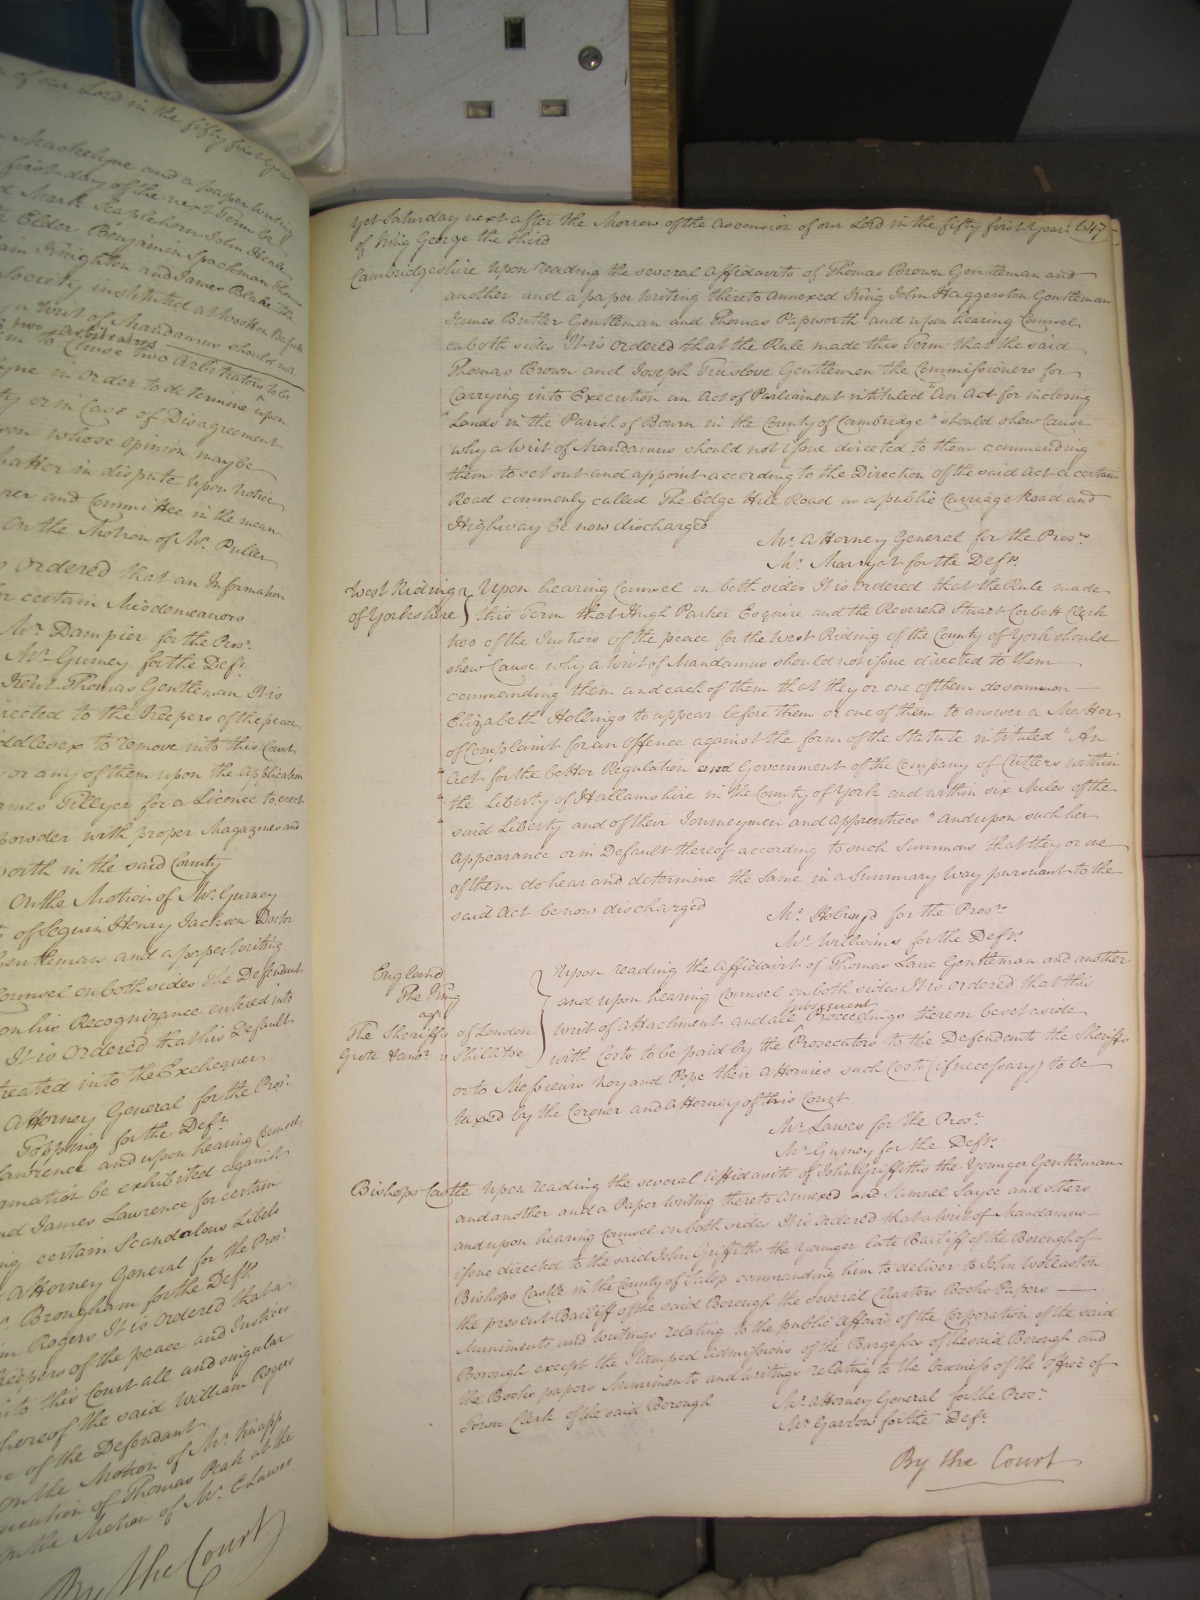 of our Lord in the fifty first year
Maskelyne and a paper writing
first day of the next Term be
Mark Staplehorn John Henle
Elder Benjamin Spackman Thomas
Knighton and James Blake the
Society instituted at Wootton Bassett
a Writ of Mandamus should not
two arbitrators
to Chuse two Arbitrators to be
in order to determine upon
or in Case of Disagreement
whose opinion may be
matter in dispute upon notice
and Committee in the mean
On the Motion of Mr. Puller
ordered that an Information
certain Misdemeanors
Mr. Dampier for the Prosr.
Mr. Gurney for the Deft.
Kent Thomas Gentleman It is
directed to the Keepers of the peace
Middlesex to remove into this Court
or any of them upon the Application
James Tillyer for a Licence to erect
powder with proper Magazines and
worth in the said County
On the Motion of Mr. Gurney
of Seguin Henry Jackson Doctor
Gentleman and a paper writing
Counsel on both sides the Defendant
on his Recognizance entered into
It is ordered that his Default
treated into the Exchequer
Attorney General for the Prosr.
Topping for the Deft.
Lawrence and upon hearing Counsel
Information be exhibited against
and James Lawrence for certain
certain Scandalous Libels
Attorney General for the Prosr.
Brougham for the Defts.
Rogers It is ordered that a
Keepers of the peace and Justices
into this Court all and singular
hereof the said William Rogers
of the Defendant
On the Motion of Mr. Knapp
of Thomas Peak at the
On the Motion of Mr. E Lawes
By the Court
Yet Saturday next after the Morrow of the Ascension of our Lord in the fifty first Year (647
of King George the Third
Cambridgeshire Upon reading the several affidavits of Thomas Brown Gentleman and
another and a paper Writing thereto Annexed King John Haggerston Gentleman
James Butler Gentleman and Thomas Papworth and upon hearing Counsel
on both sides It is ordered that the Rule made this Term that the said
Thomas Brown and Joseph Truslove Gentlemen the Commissioners for
Carrying into Execution an Act of Parliament intituled "An Act for inclosing
"Lands in the Parish of Bourn in the County of Cambridge" should shew Cause
why a Writ of Mandamus should not issue directed to them commanding
them to set out and appoint according to the Direction of the said Act a certain
Road commonly called The Edge Hill Road as a public Carriage Road and
Highway be now discharged
Mr. Attorney General for the Prosrs.
Mr. Marryat for the Defts.
West Riding of Yorkshire } Upon hearing Counsel on both sides It is ordered that the Rule made
this Term that Hugh Parker Esquire and the Reverend Stuart Corbett Clerk
two of the Justices of the peace for the West Riding of the County of York should
shew Cause why a Writ of Mandamus should not issue directed to them
commanding them and each of them that they or one of them do summon
Elizabeth Hollings to appear before them or one of them to answer a Matter
of Complaint for an Offence against the form of the Statute intituled "An
"Act for the better Regulation and Government of the Company of Cutlers within
"the Liberty of Hallamshire in the County of York and within six Miles of the
"said Liberty and of their Journeymen and apprentices" and upon such her
appearance or in Default thereof according to such Summons that they or one
of them do hear and determine the same in a Summary Way pursuant to the
said Act be now discharged
Mr. Holroyd for the Prosrs.
Mr. Williams for the Defts.
England
The King
agt.
The Sheriffs of London
Grote
Upon reading the Affidavit of Thomas Lane Gentleman and another
and upon hearing Counsel on both sides It is ordered that this
subsequent
Writ of Attachment and all Proceedings thereon be set aside
with Costs to be paid by the Prosecutors to the Defendants the Sheriffs
or to Messieurs Noy and Pope their Attornies such Costs (if necessary) to be
taxed by the Coroner and Attorney of this Court
Mr. Lawes for the Prosr.
Mr. Gurney for the Defts.
Bishops Castle Upon reading the several Affidavits of John Griffiths the Younger Gentleman
and another and a Paper writing thereto Annexed and Samuel Sayce and others
and upon hearing Counsel on both sides It is ordered that a Writ of Mandamus
issue directed to the said John Griffiths the Younger late Bailiff of the Borough of
Bishops Castle in the County of Salop commanding him to deliver to John Wollaston
the present Bailiff of the said Borough the several Charters Books Papers
Muniments and writings relating to the public Affairs of the Corporation of the said
Borough except the Stamped admissions of the Burgesses of the said Borough and
the Books papers Muniments and writings relating to the business of the Office of
Town Clerk of the said Borough
Mr. Attorney General for the Prosr.
Mr. Garrow for the Deft.
By the Court